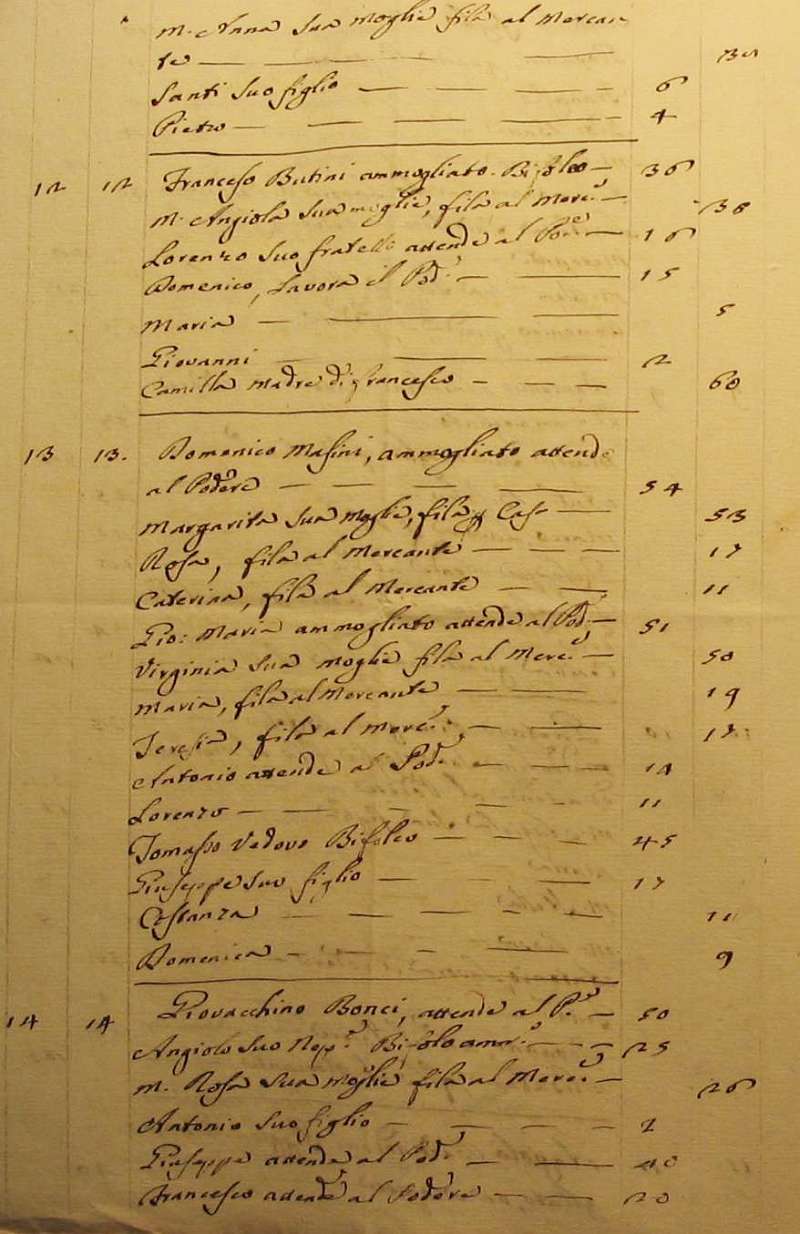 M. Anna Sua Moglie fila al Mercan
te — — — — 30
Santi Suo figlio — — — 6
Pietro — — — — 4
12 12 Francesco Butini ammogliato. Bifolco — 36
M. Angiola Sua moglie, fila al Merc.e — 38
Lorenzo Suo fratello attende al Po.re — 16
Domenico, lavora il Pod.e — — 15
Maria — — — 5
Giovanni — — — 2
Camilla Madre di francesco — — — 60
13 13. Domenico Masini, ammogliato attende
al Podere — — — — 54
Margarita Sua Moglie, fila p Casa — 53
Rosa, fila al Mercante — — — 17
Caterina, fila al Mercante — — 11
Gio: Maria ammogliato attende al Pod.e — 51
Virginia Sua moglie fila al Merc.e — 50
Maria, fila al Mercante — — — 19
Teresia, fila al Merc.e — — 17
Antonio attende al Pod.e — — — 14
Lorenzo — — — — — 11
Tomasso Vedovo Bifolco — — — 45
Giuseppe Suo figlio — — — 17
Costanza — — — — — 11
Domenica — — — — 9
14 14 Giovacchino Bonci, attende al P.re — 50
Angiolo Suo Nep.e Bifolco amm.o — — — 25
M. Rosa Sua Moglie fila al Merc.e — 26
Antonio Suo figlio — — — — 2
Giuseppe attende al Pod.e — — 40
Francesco attende al Podere — — 20